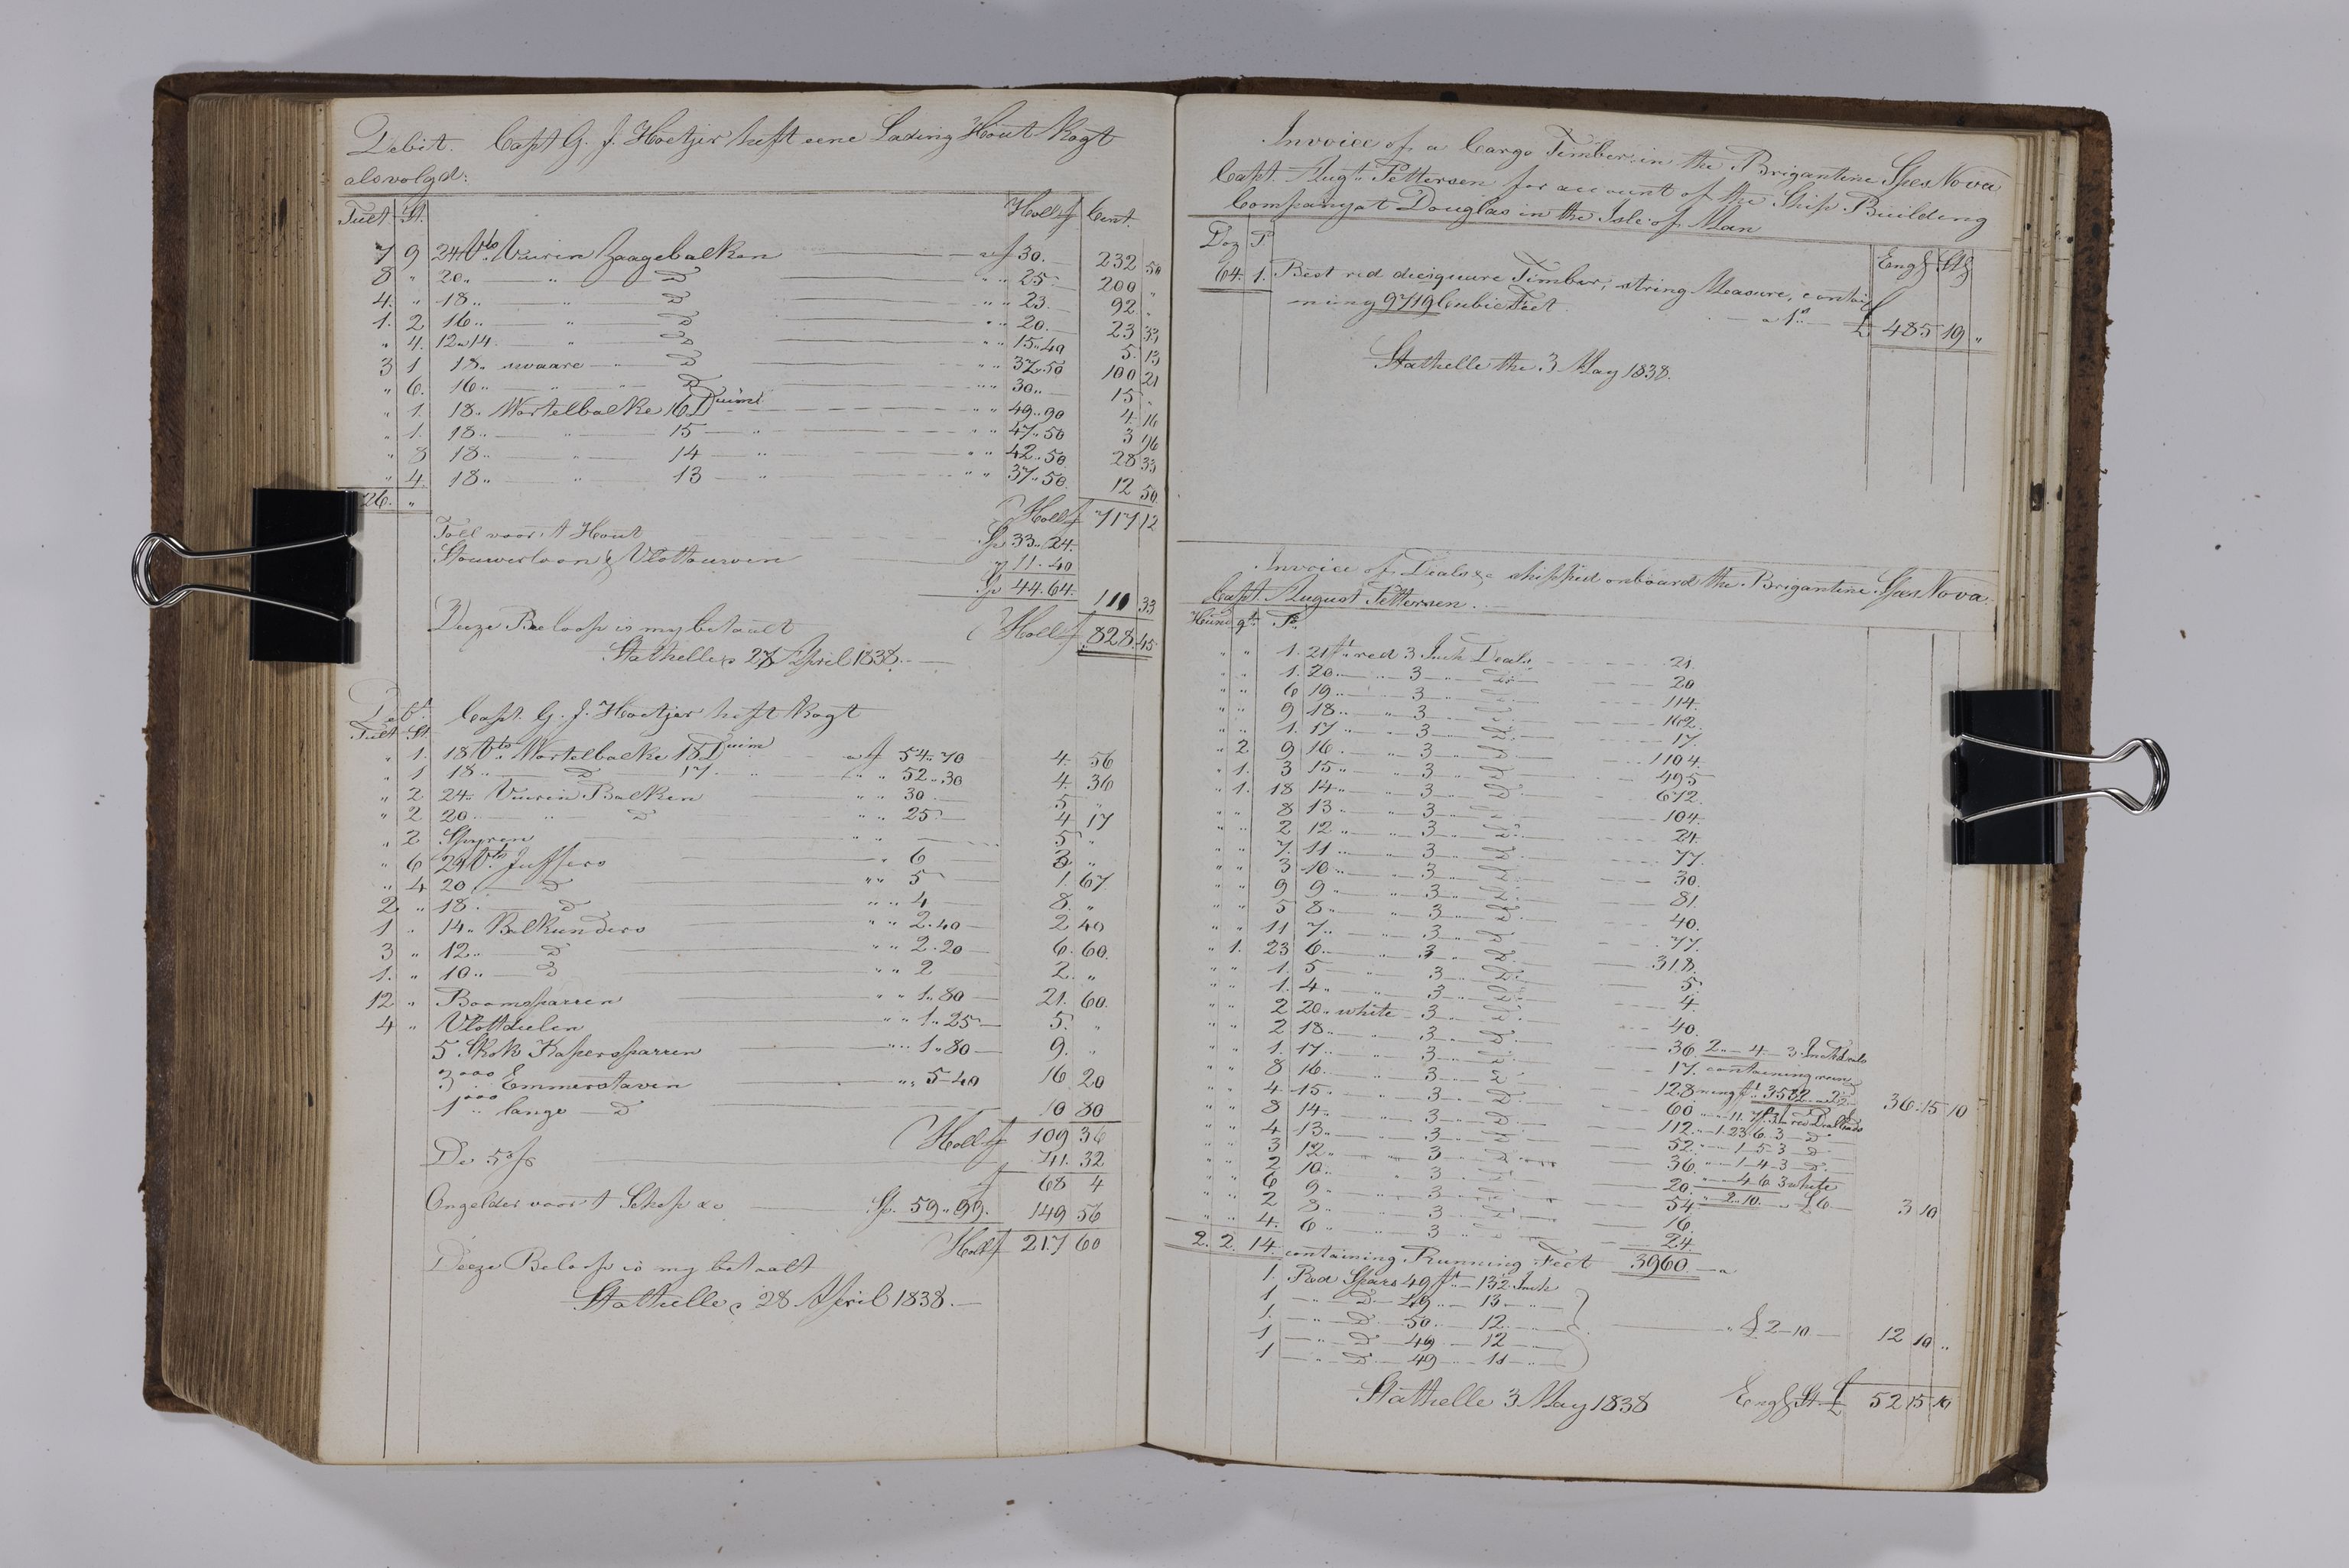 Debit. Capt G. J. Hoetjer heft eene Lading Hout kogt
alsvolgd:
Tult St. Holl f Cent.
7 9 24 Vts Vuiren Zaagebalken a f 30. 232 50
8 " 20 " " D " " 25 200 "
4. " 18 " " D " " 23. 92 "
1. 2 16 " " D " " 20. 23 33
" 4. 12 a 14 " D " " 15.40 5. 13
3 1 18 " swaare " D " " 37.50 100 21
" 6. 16 " " " D " " 30 " 15 "
" 1. 18 " Wortelbalke 16 Duims " " 49.90 4. 16
" 1. 18 " " 15 " " " 47.50 3 96
" 8 18 " " 14 " " " 42.50 28 33
" 4. 18 " " 13 " " " 37.50 12 50
26. " Holl f 717 12
Toll voor 't Hout Sp 33. 24.
Stouwerloon & Vlottowen " 11. 40
Sp 44.64. 111 33
Deeze Beloop is my betaalt Holl f 828.45
Stathelle, 27 April 1838.
Debt. Capt. G. J. Hoetjer heft kogt
Tult St.
" 1. 18 Vts Wortelbalke 18 Duim a f 54.70 4. 56
" 1 18 " D 17. " " " 52.30 4. 36
" 2 24 " Vuiren Balken " " 30 5 "
" 2 20 " " D " " 25 4 17
" 2 Spyren " " 5 "
" 6 24 Vts Juffers " 6 3 "
" 4 20 D " " 5 1. 67
2 " 18 " D " " 4 8. "
1 " 14 " Balkunders " " 2.40 2 40
3 " 12 " D " " 2.20 6. 60.
1. " 10 " D " " 2 2. "
12 " Boomsparren " " 1.80 21. 60.
4 " Vlottdielen " " 1.25 5. "
5. Skok Kapersparren " " 1.80 9. "
3000 Emmerstaven " " 5.40 16 20
1000 lange D 10 80
Holl f 109 36
De 41. 32
f 68 4
Ongelder voor 't Schip &c Sp. 59.99. 149 56
Holl f 217 60
Deeze Beloop is my betaalt
Stathelle, 28 April 1838.
Invoice of a Cargo Timber in the Brigantine Spes Nova
Capt. Augt. Pettersen for account of the Ship Building
Company at Douglas in the Isle of Man
Doz P. Engl Stg
64. 1. Best red diesquare Timber, string Measure, contai
ning 9719 Cubic Feet a 1s £ 485 19 "
Stathelle the 3 May 1838.
Invoice of Deals &c shipped onboard the Brigantine Spes Nova
Capt. August Pettersen.
Hund qt. Ps.
" " 1. 21 ft red 3 Inch Deals 21.
" " 1. 20 " " 3 " D 20
" " 6 19 " " 3 " D 114.
" " 9 18 " " 3 " D 162.
" " 1. 17 " " 3 " D 17.
" 2 9 16 " " 3 " D 1104.
" 1. 3 15 " " 3 " D 495
" 1. 18 14 " " 3 " D 672.
" " 8 13 " " 3 " D 104.
" " 2 12 " " 3 " D 24.
" " 7 11 " " 3 " D 77.
" " 3 10 " " 3 " D 30.
" " 9 9 " " 3 " D 81.
" " 5 8 " " 3 " D 40.
" " 11 7 " " 3 " D 77.
" 1. 23 6 " " 3 " D 318.
" " 1. 5 " 3 " D 5.
" " 1. 4 " " 3 " D 4.
" " 2 20 " white 3 " D 40.
" " 2 18 " " 3 " D 36. 2 " 4 3 Inch deals
" " 1. 17 " " 3 " D 17. containing run
" " 8 16 " " 3 " D 128 ning ft 3532 36 15 10
" " 4 15 " " 3 " D 60 " 11. 7f 3In red Dealends
" " 8 14 " " 3 " D 112. " 1. 23 6. 3 D
" " 4 13 " " 3 " D 52. " 1 5 3 D
" " 3 12 " " 3 " D 36. " 1 4 3 D
" " 2 10 " " 3 " D 20. " 4 6 3 white
" " 6 9 " " 3 " D 54. " 2. 10. £6 3 10
" " 2 8 " " 3 " D 16.
" " 4. 6 " " 3 " D 24.
2. 2. 14. containing Running Feet 3960. a
1. Red Spars 49 ft 13 2 Inch
1 " D 49 " 13 "
1. " D 50 " 12 " " £ 2 10 12 10 "
1 " D 49 " 12 "
1 " D 49 " 11 "
Stathelle 3 May 1838 Engl St £ 52 15 10